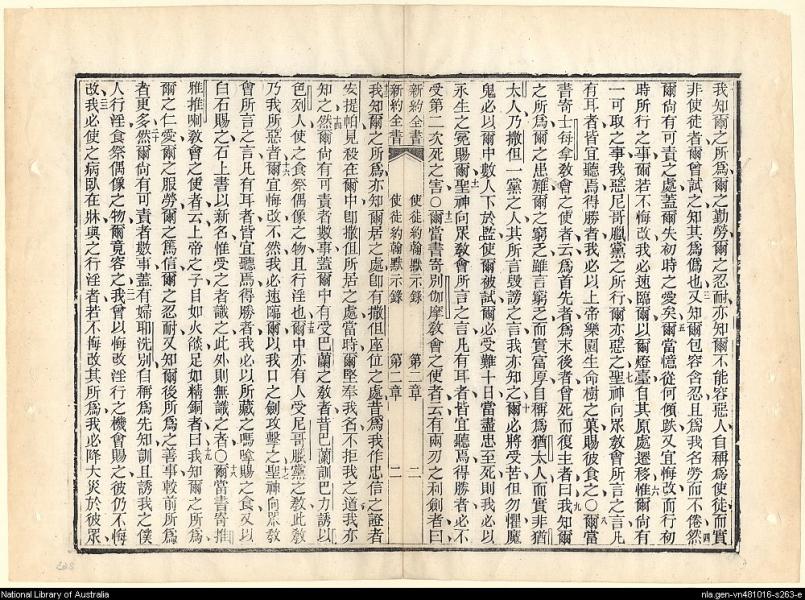 我知爾之所爲爾之勤勞爾之忍耐亦知爾不能容惡人自稱爲使徒而實
非使徒者爾曾試之知其爲僞也又知爾包容含忍且爲我名勞而不倦然
爾尙有可責之處蓋爾失初時之愛矣爾當憶從何傾跌又宜悔改而行初
時所行之事爾若不悔改我必速臨爾以爾燈臺自其原處遷移惟爾尙有
一可取之事我惡尼哥臘黨之所行爾亦惡之聖神向眾敎會所言之言凡
有耳者皆宜聽焉得勝者我必以上帝樂園生命樹之菓賜彼食之○爾當
書寄士每拿敎會之使者云爲首先者爲末後者曾死而復生者曰我知爾
之所爲爾之患難爾之窮乏雖言窮乏而實富厚自稱爲猶太人而實非猶
太人乃撒但一黨之人其所言毀謗之言我亦知之爾必將受苦但勿懼魔
鬼必以爾中數人下於監使爾被試爾必受難十日當盡忠至死則我必以
永生之冕賜爾聖神向眾敎會所言之言凡有耳者皆宜聽焉得勝者必不
受第二次死之害○爾當書寄別伽摩敎會之使者云有兩刃之利劍者曰
新約全書 使徒約翰默示錄 第二章 二
新約全書 使徒約翰默示錄 第二章 二
我知爾之所爲亦知爾居之處卽有撒但座位之處昔爲我作忠信之證者
安提帕見殺在爾中卽撒但所居之處當時爾堅奉我名不拒我之道我亦
知之然爾尙有可責者數事蓋爾中有受巴蘭之敎者昔巴蘭訓巴力誘以
色列人使之食祭偶像之物且行淫也爾中亦有人受尼哥臘黨之敎此敎
乃我所惡者爾宜悔改不然我必速臨爾以我口之劍攻擊之聖神向眾敎
會所言之言凡有耳者皆宜聽焉得勝者我必以所藏之嗎嗱賜之食又以
白石賜之石上書以新名惟受之者識之此外則無識之者○爾當書寄推
雅推喇敎會之使者云上帝之子目如火燄足如精銅者曰我知爾之所爲
爾之仁愛爾之服勞爾之篤信爾之忍耐又知爾後所爲之善事較前所爲
者更多然爾尙有可責者數事蓋有婦耶洗別自稱爲先知訓且誘我之僕
人行淫食祭偶像之物爾竟容之我曾以悔改淫行之機會賜之彼仍不悔
改我必使之病臥在牀與之行淫者若不悔改其所爲我必降大災於彼眾
National Library of Australia
nla.gen-vn481016-s263-e